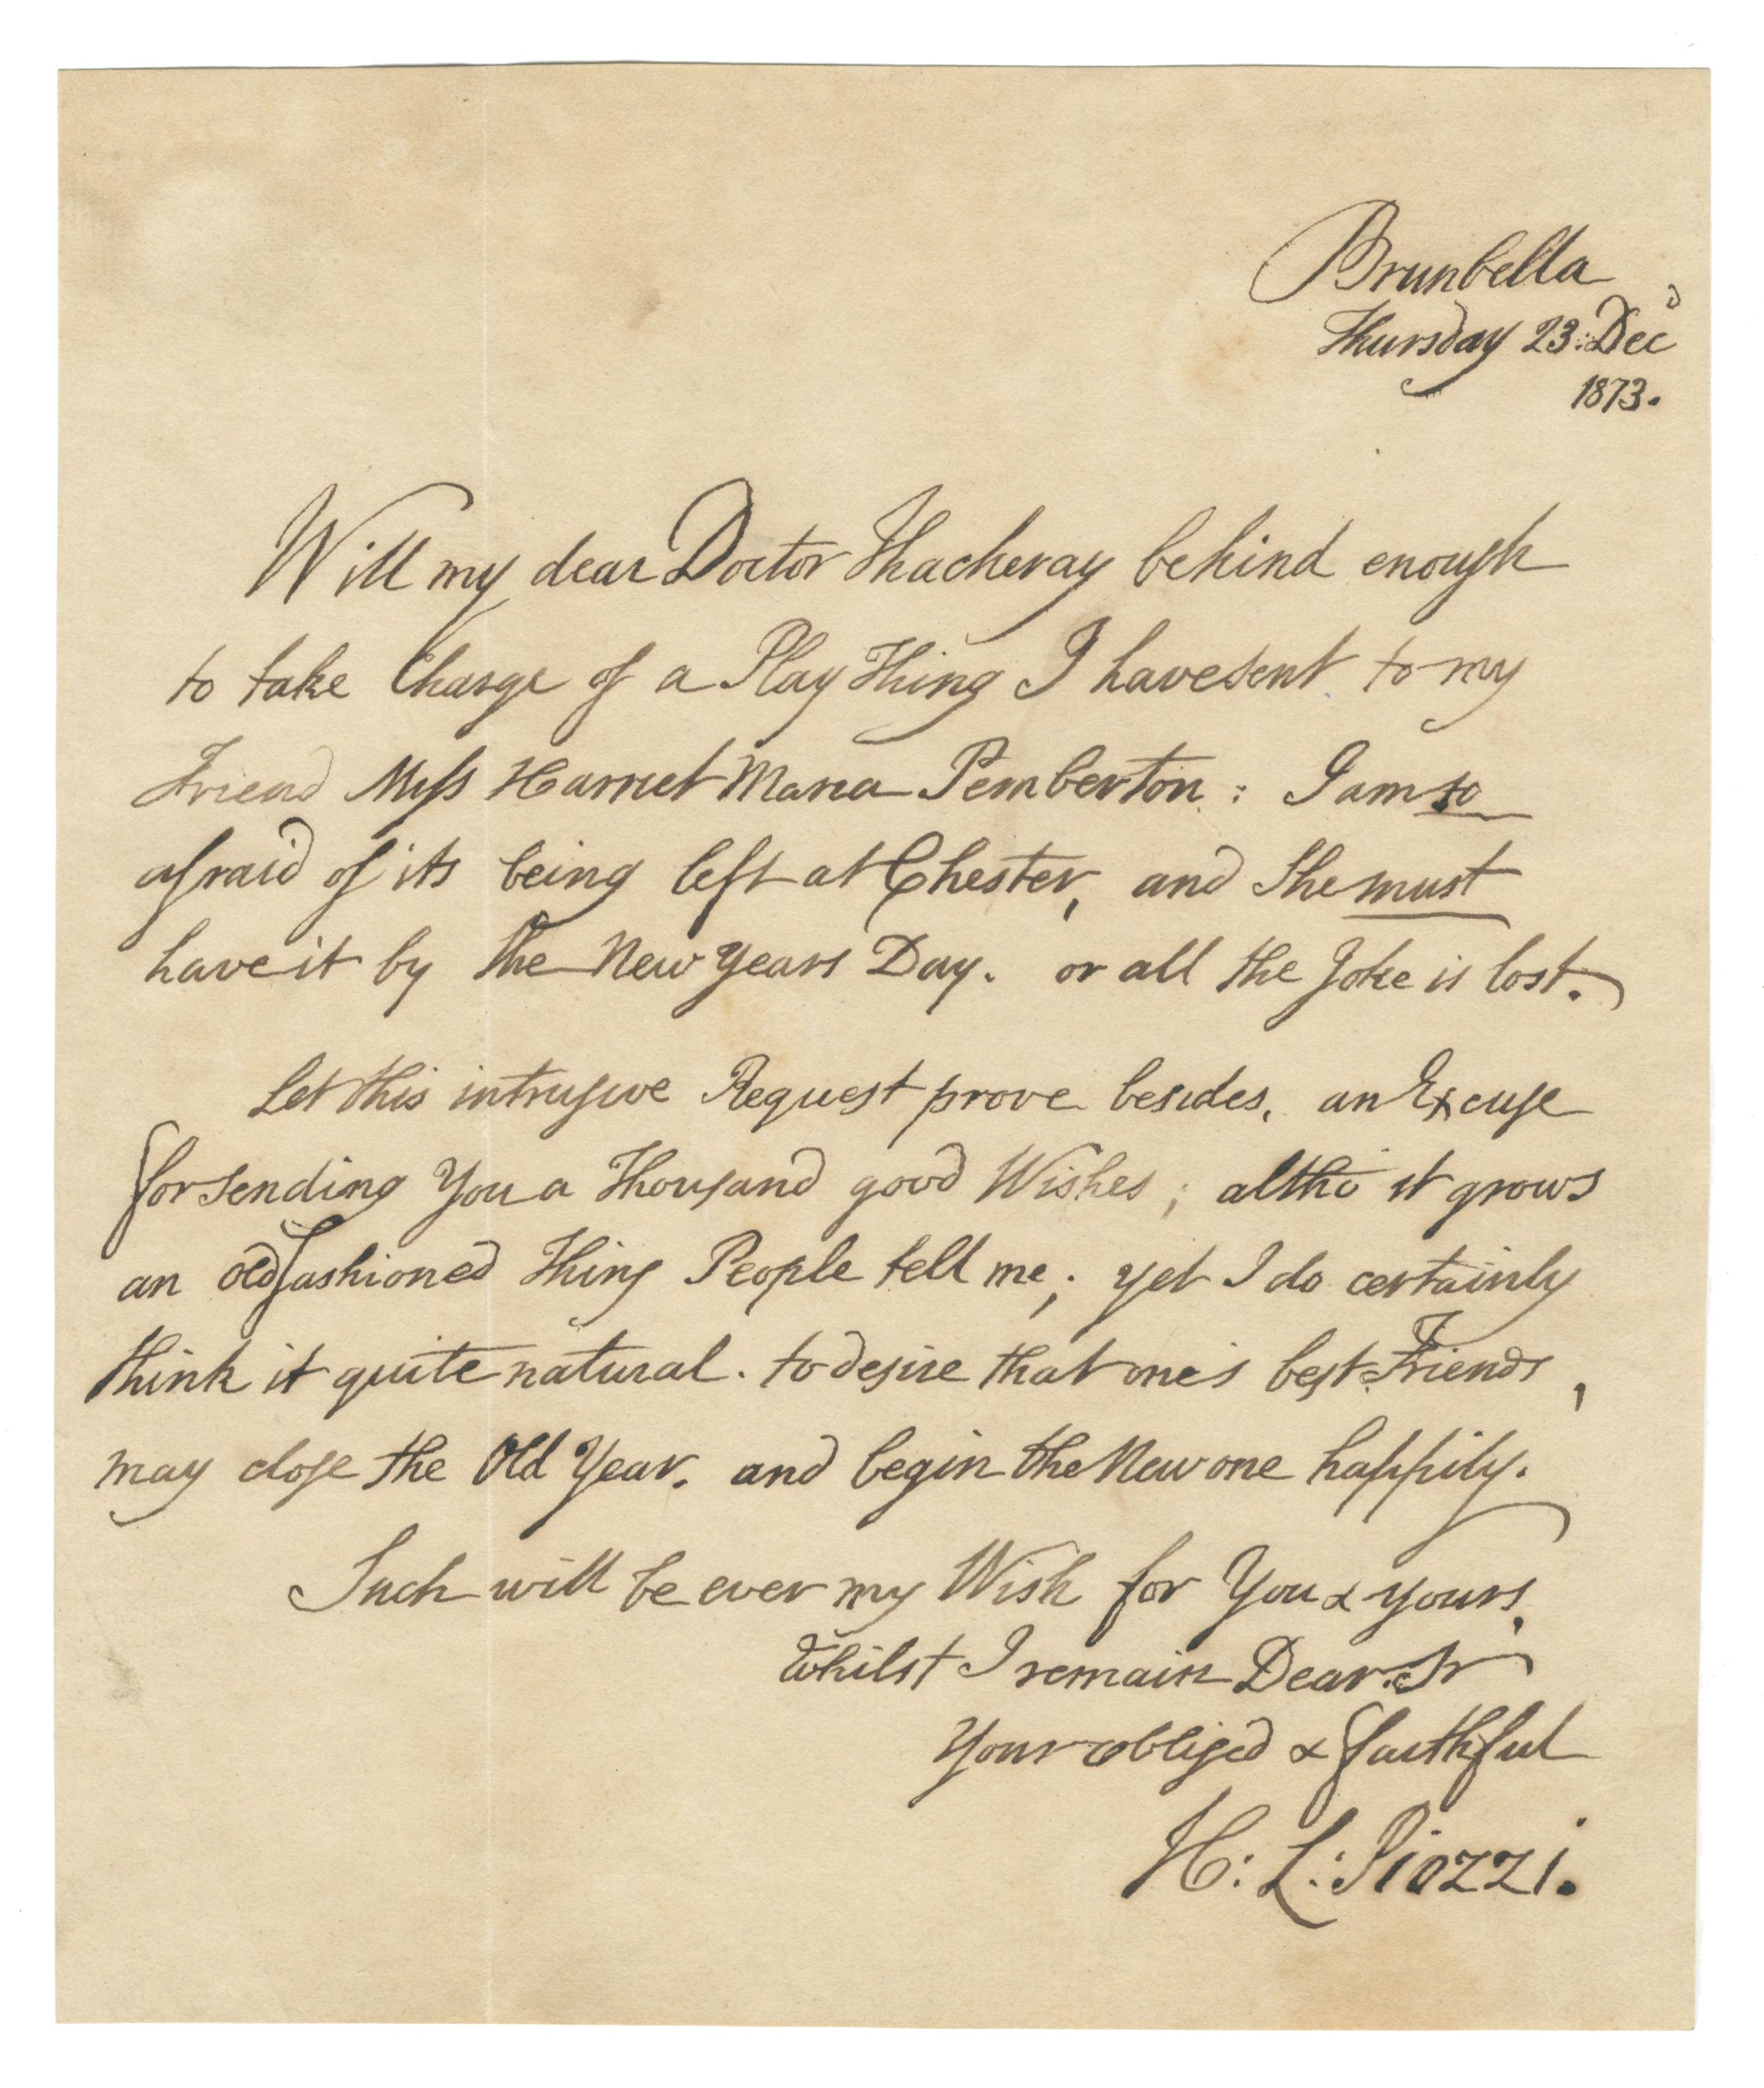 Brunbella
Thursday 23: Decd
1873.
Will my dear Doctor Thackeray be kind enough
to take Charge of a Play Thing I have sent to my
Friend Miſs Harriet Maria Pemberton : I am so
afraid of its being left at Chester, and She must
have it by the New Years Day. or all the Joke is lost.
Let this intruſive Request prove besides, an Excuſe
for sending You a Thouſand good Wishes ; altho' it grows
an old fashioned Thing People tell me ; yet I do certainly
think it quite natural. to deſire that one's beſt Friends,
may cloſe the Old Year. and begin the New one happily.
Such will be ever my Wish for You & yours,
Whilst I remain Dear Sr
Your obliged & faithful
H: L: Piozzi.